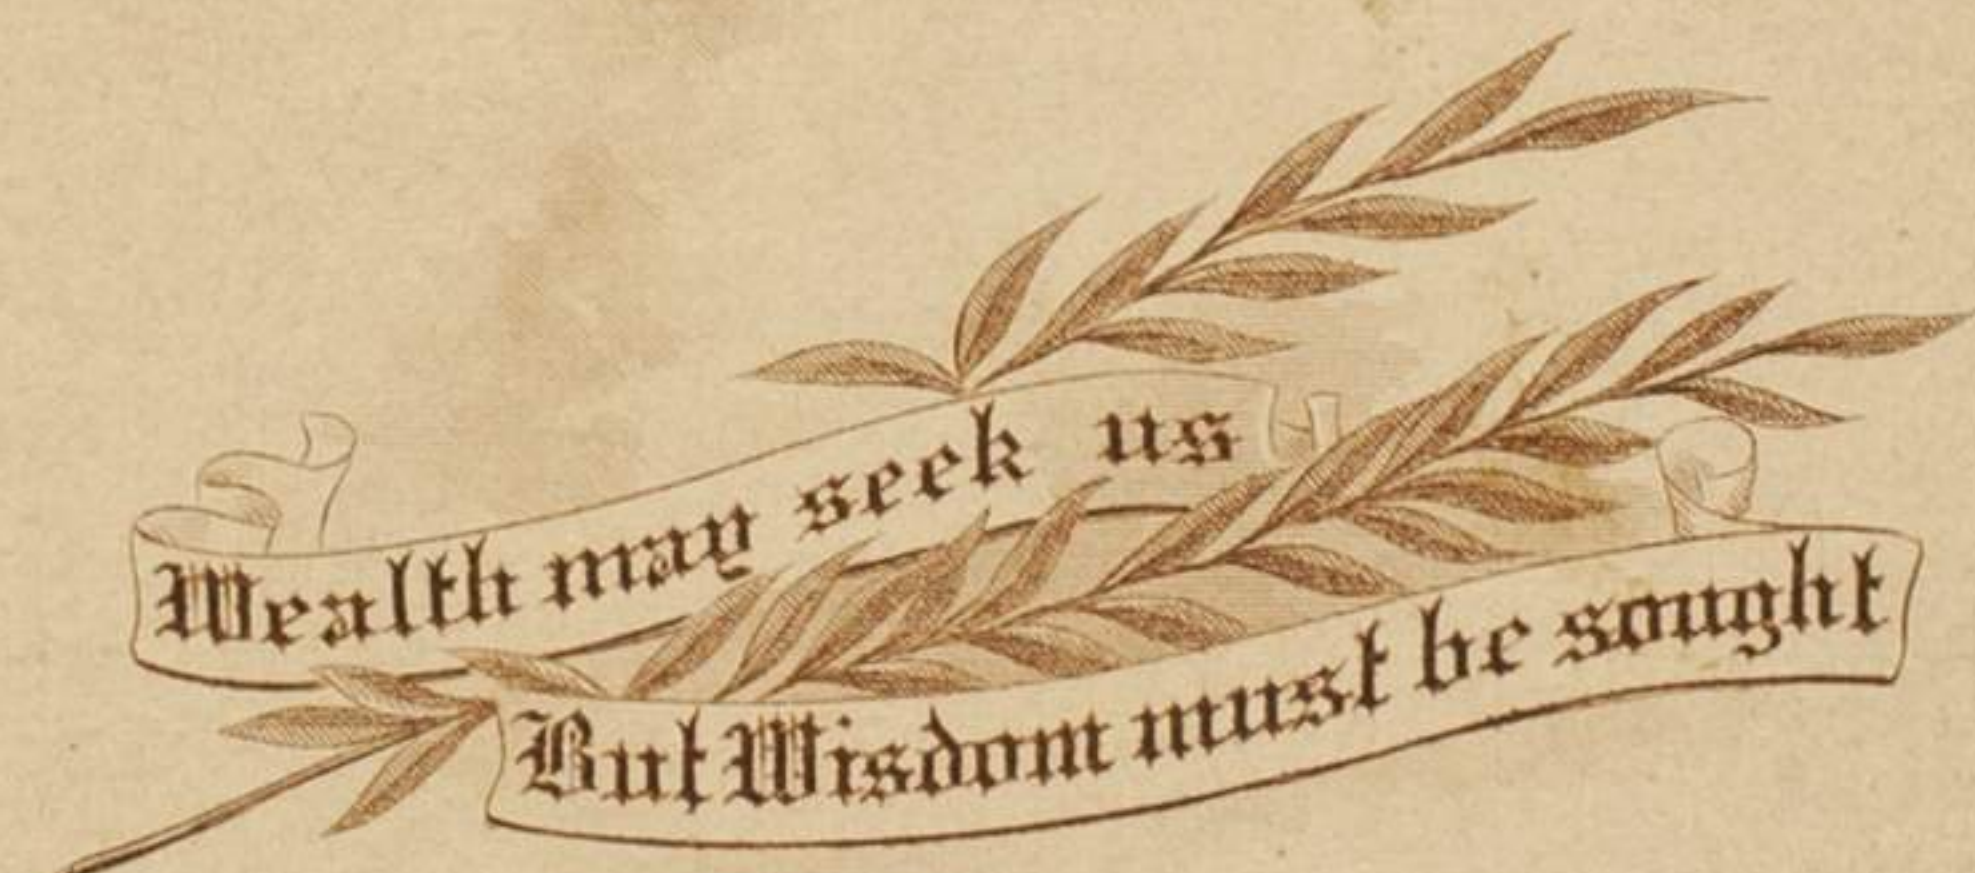 Wealth may seek us
But Wisdom must be sought